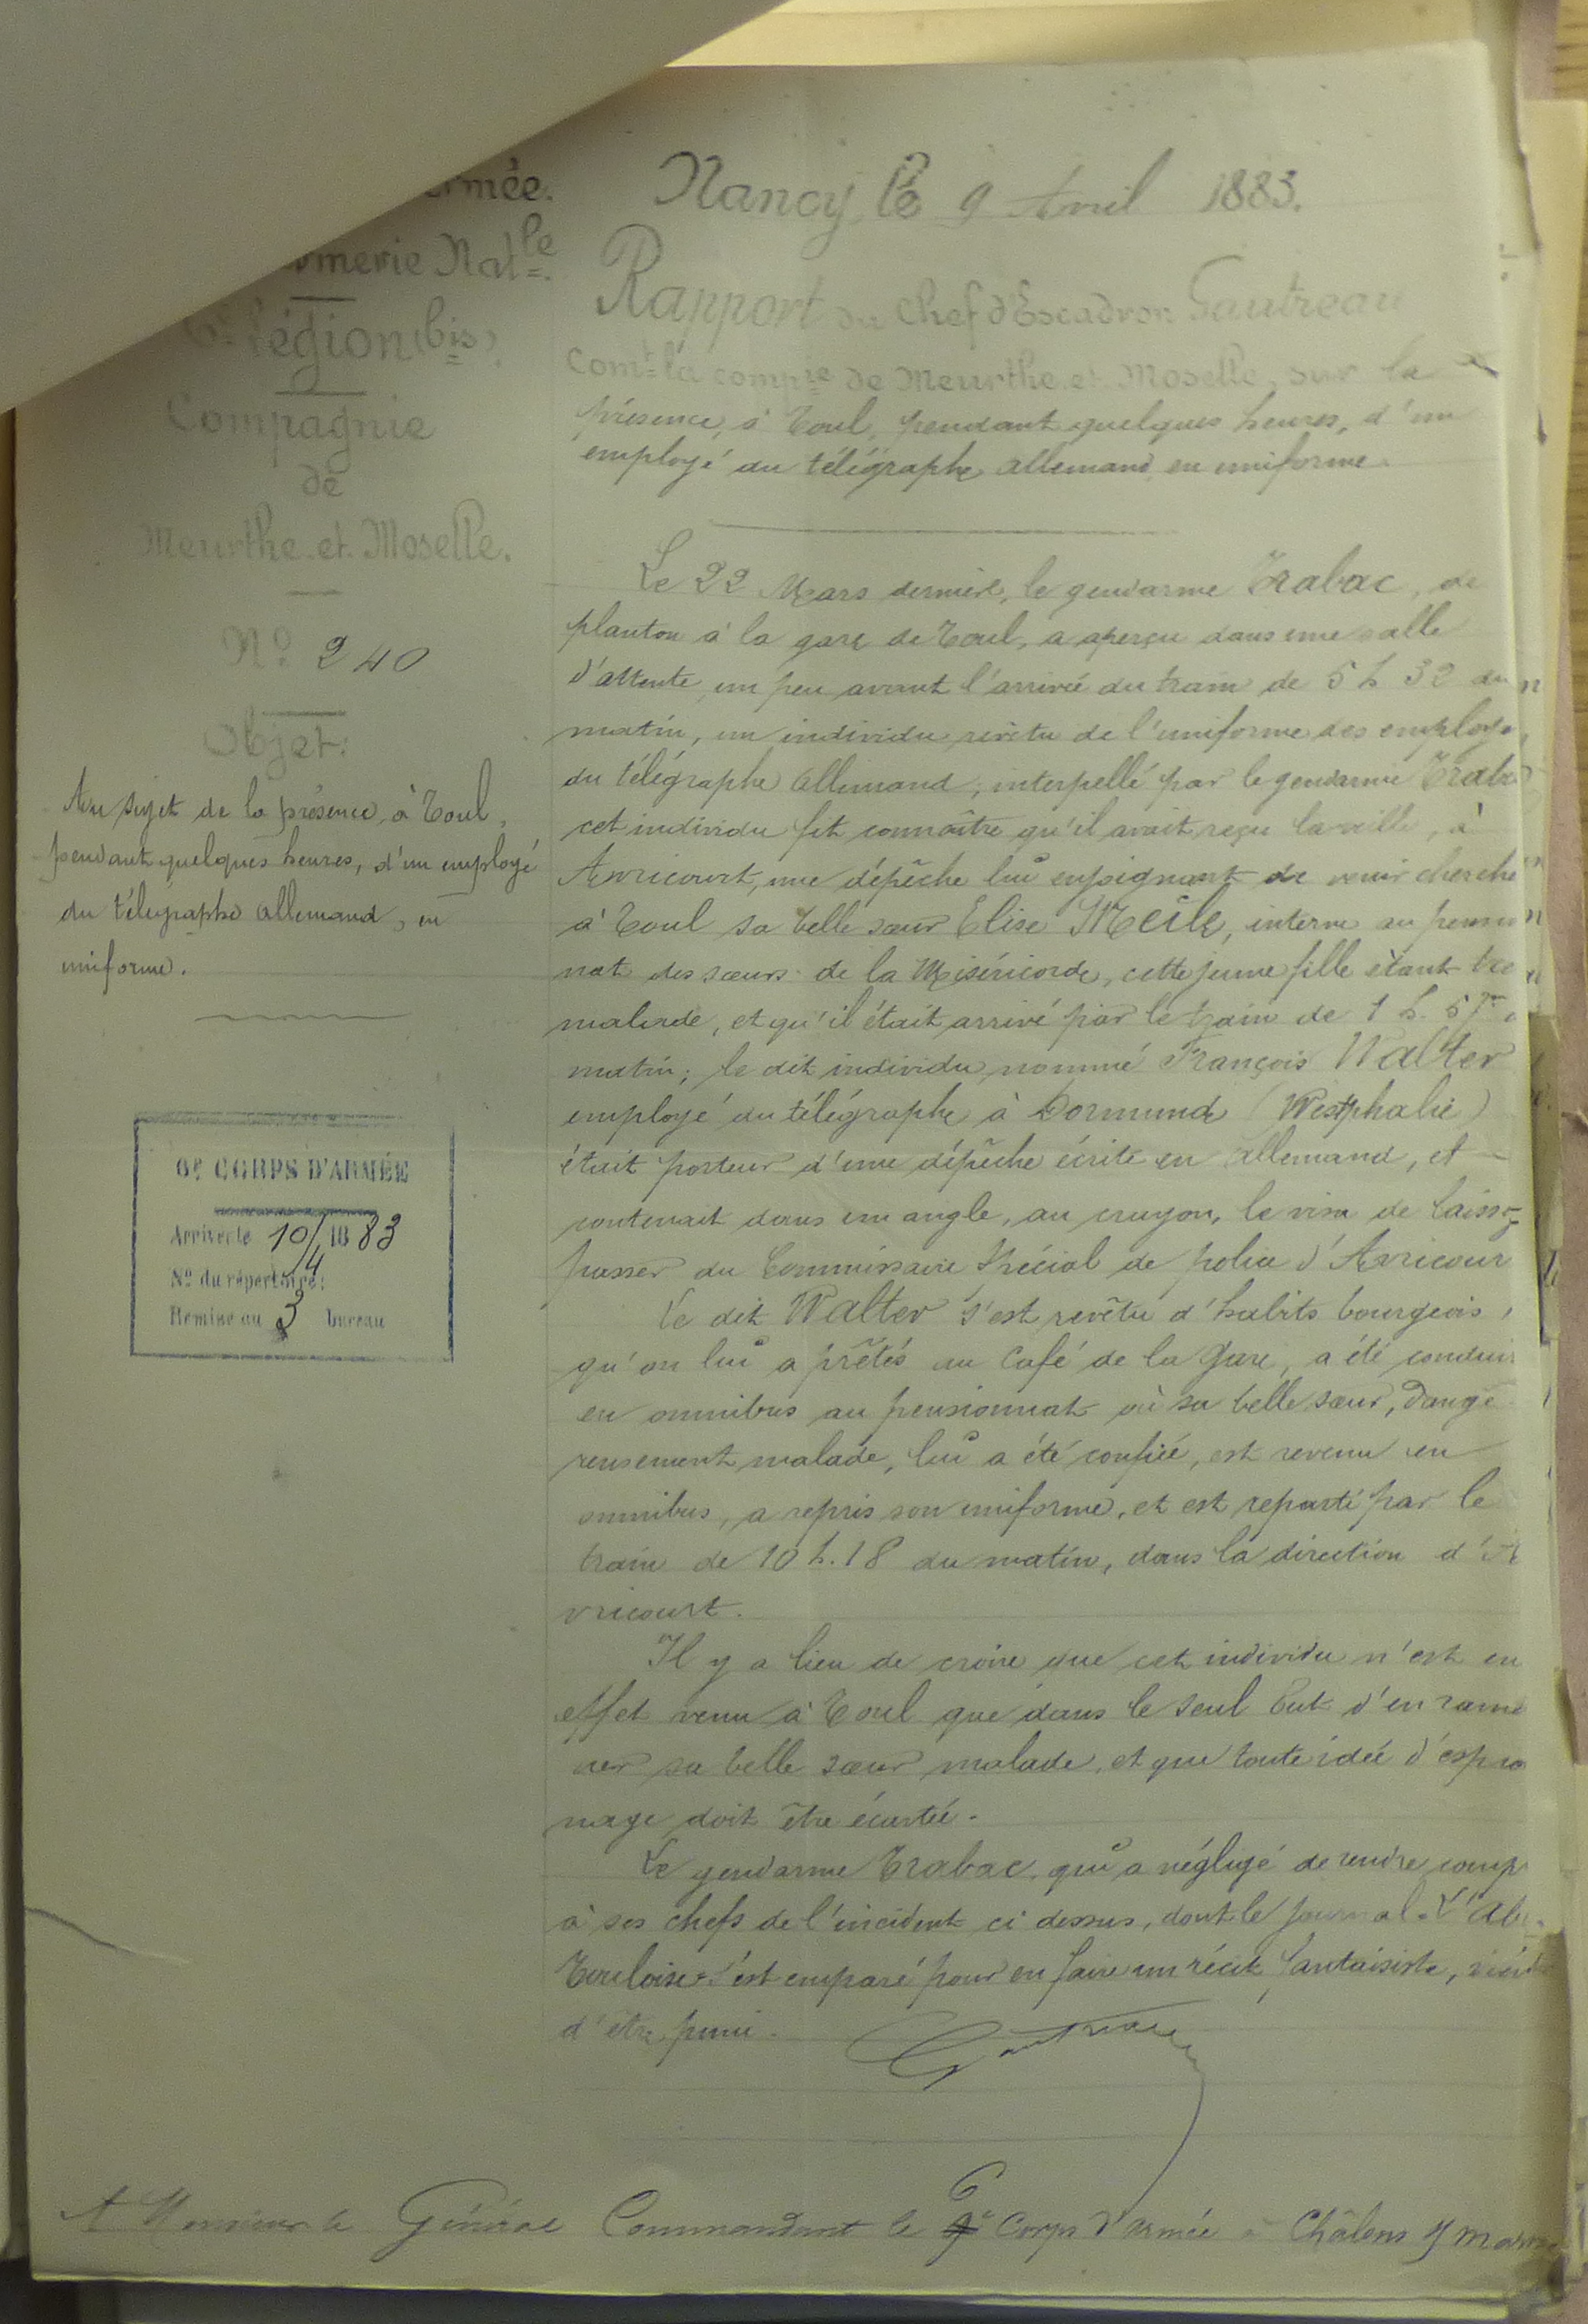 Nancy, le 9 Avril 1883.
Rapport du Chef d'Escadron Gautreau
Comt la compie de Meurthe et Moselle, sur la
présence, à Toul, pendant quelques heures, d'un
employé du télégraphe allemand, en uniforme.
rmée.
rmerie Natle
6e Légion (bis).
Compagnie
de
Meurthe et Moselle.
No 240
Objet:
Au sujet de la présence, à Toul,
pendant quelques heures, d'un employé
du télégraphe allemand, en
uniforme.
6e CORPS D'ARMÉE
Arrivée le 10/4 1883
No du répertoire:
Remise au 3 bureau
Le 22 Mars dernier, le gendarme Trabac, de
planton à la gare de Toul, a aperçu dans une salle
d'attente, un peu avant l'arrivée du train de 5 h 32 du
matin, un individu revêtu de l'uniforme des employé
du télégraphe allemand; interpellé par le gendarme Trabac
cet individu fit connaître qu'il avait reçu la veille, à
Avricourt, une dépêche lui enjoignant de venir cherche
à Toul sa belle sœur Elise Meile, interne au pension
nat des sœurs de la Miséricorde, cette jeune fille étant très
malade, et qu'il était arrivé par le train de 1 h. 57
matin; le dit individu nommé François Walter
employé du télégraphe à Dormund (Westphalie)
était porteur d'une dépêche écrite en allemand, et
contenait dans un angle, au crayon, le visa de laissez
passer du Commissaire Spécial de police d'Avricour
Le dit Walter s'est revêtu d'habits bourgeois,
qu'on lui a prêtés au Café de la Gare, a été conduit
en omnibus au pensionnat où sa belle sœur, dange
reusement malade, lui a été confiée, est revenu en
omnibus, a repris son uniforme, et est reparti par le
train de 10 h. 18 du matin, dans la direction d'A
vricourt.
Il y a lieu de croire que cet individu n'est en
effet venu à Toul que dans le seul but d'en rame
ner sa belle sœur malade, et que toute idée d'espio
nage doit être écartée.
Le gendarme Trabac, qui a négligé de rendre comp
à ses chefs de l'incident ci dessus, dont le journal
Touloise s'est emparé pour en faire un récit fantaisiste, vient
d'être puni.
Gautreau
A Monsieur le Général Commandant le 6e Corps d'armée à Châlons s/ marne